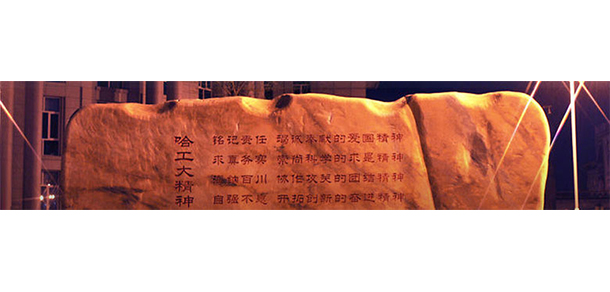 哈工大精神
铭记责任 竭诚奉献的爱国精神
求真务实 崇尚科学的求是精神
海纳百川 协作攻关的团结精神
自强不息 开拓创新的奋进精神